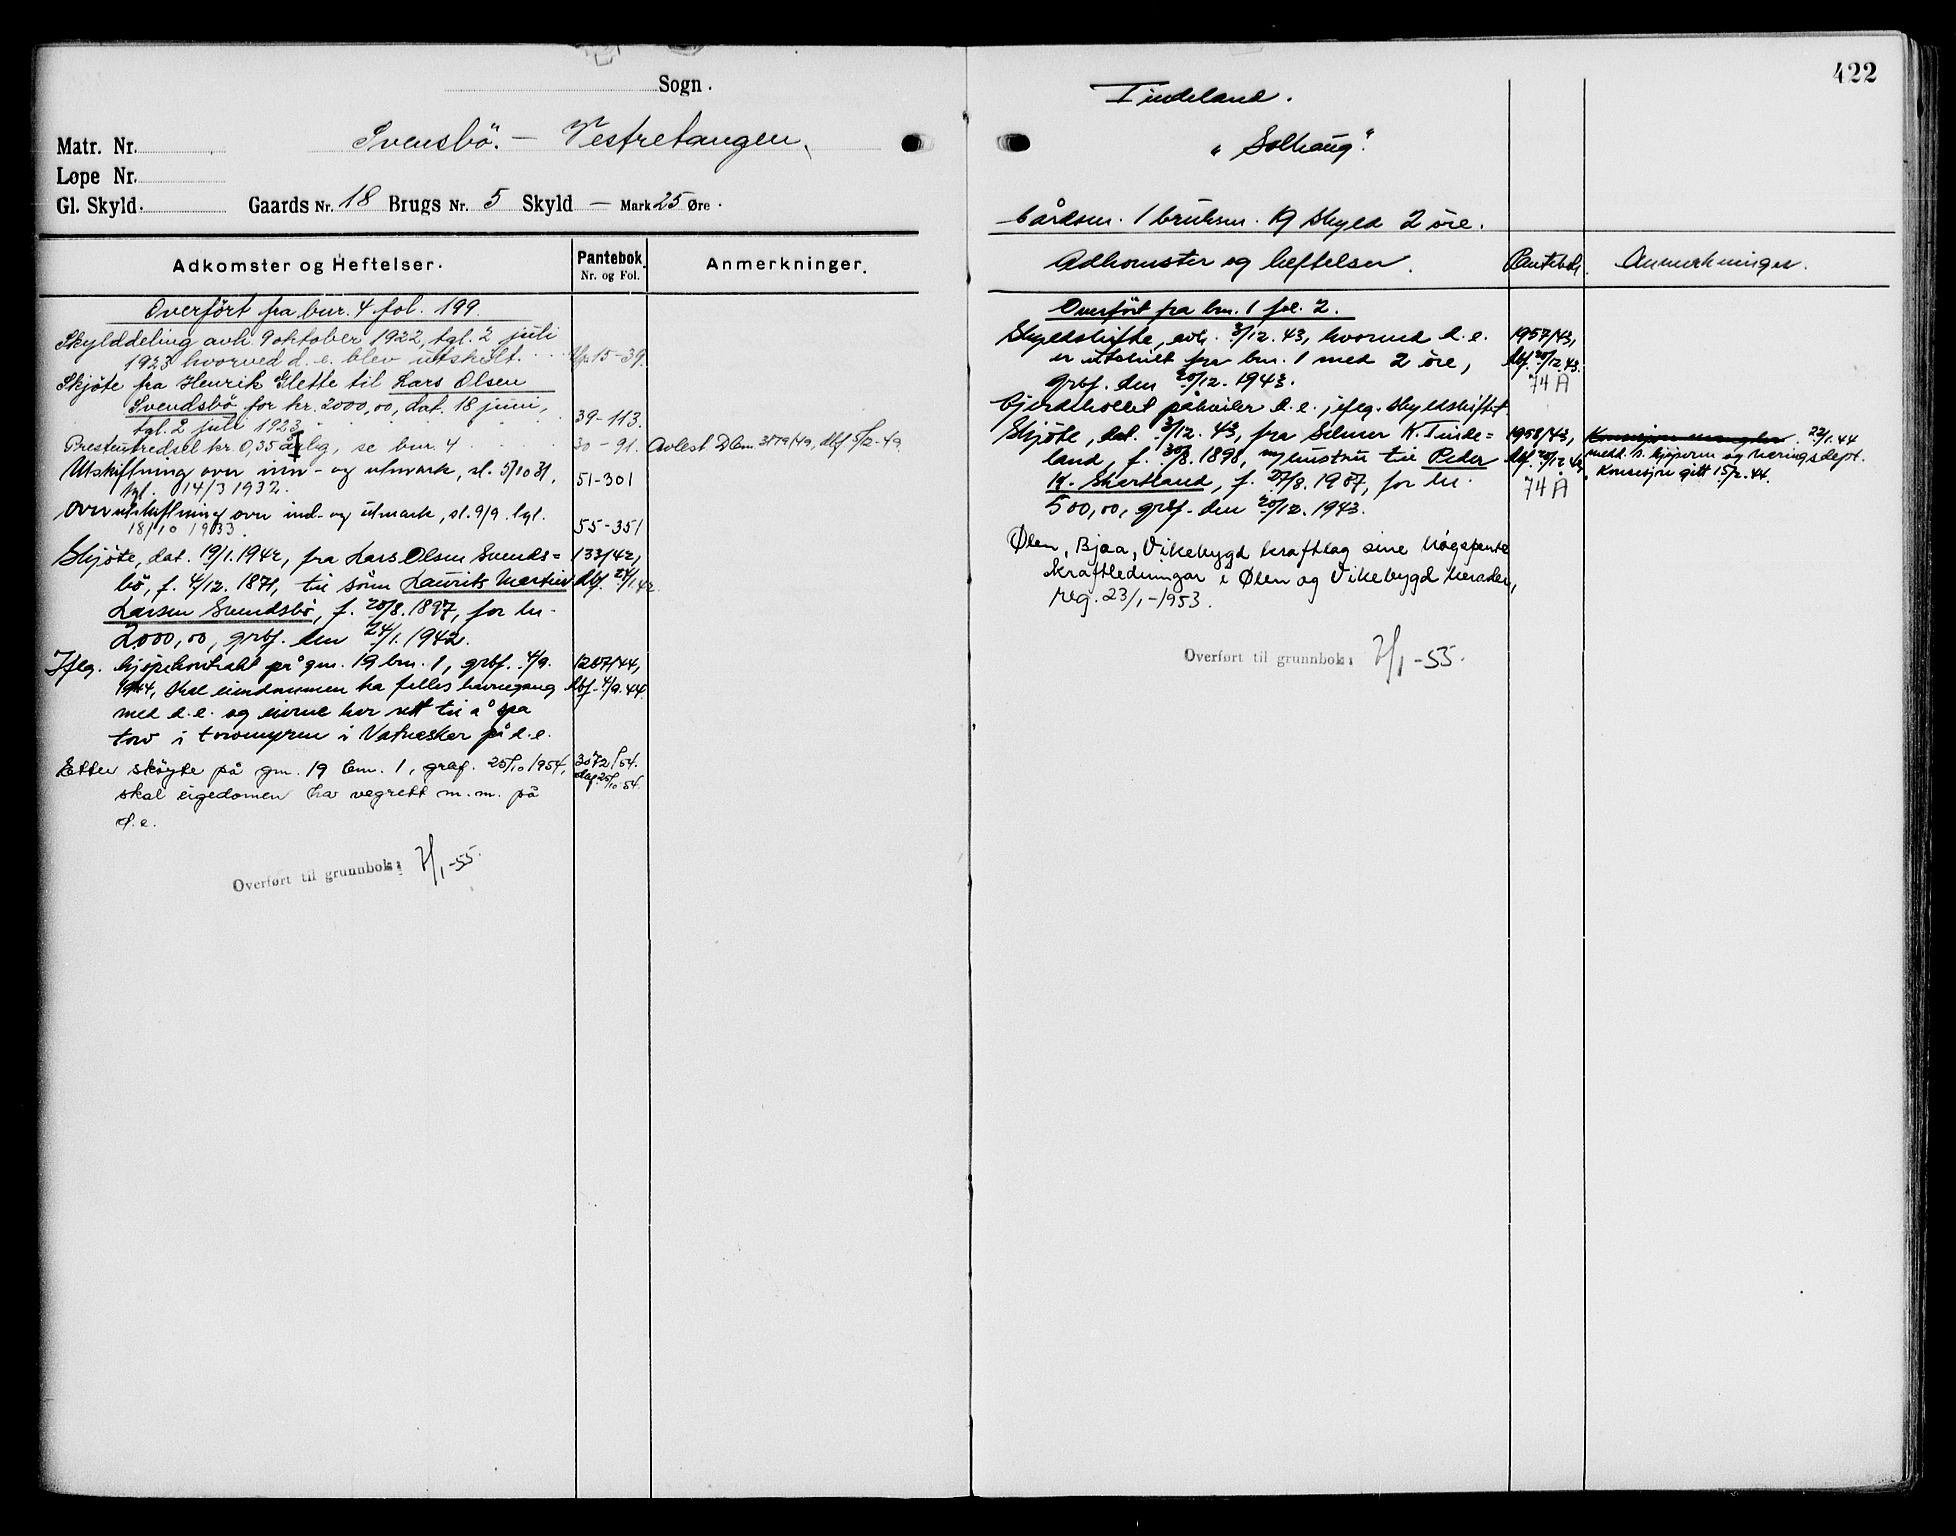 Sogn.
Matr. Nr. Svensbö. — Vestretangen.
Løpe Nr.
Gl. Skyld. Gaards Nr. 18 Brugs Nr. 5 Skyld — Mark 25 Øre.
Adkomster og Heftelser. Pantebok. Nr. og Fol. Anmerkninger.
Overfört fra bnr. 4 fol. 199.
Skylddeling avh. 9 oktober 1922, tgl. 2 juli
1923 hvorved d. e. blev utskilt. 15-39.
Skjöte fra Henrik Glette til Lars Olsen
Svendsbö for kr. 2000,00, dat. 18 juni,
tgl. 2 juli 1923 39-113.
Presteutredsel kr. 0,35 årlig, se bnr. 4 30-91. Avlest Dbnr. 3179/49, dbf. 5/12-49
Utskiftning over inn- og utmark, sl. 5/10 31,
tgl. 14/3 1932. 51-301
Overutskiftning over ind- og utmark, sl. 9/9. tgl.
18/10 1933. 55-351
Skjöte, dat. 19/1. 1942, fra Lars Olsen Svends= 133/42,
bö, f. 4/12. 1871, til sönn Laurits Martin dbf. 24/1.42.
Larsen Svendsbö, f. 20/8. 1897, for kr.
2000,00, grbf. den 24/1. 1942.
Ifлg. kjöpekontrakt på gnr. 19 bnr. 1, grbf. 4/9. 1207/44,
1944, skal eiendommen ha felles havnegang dbf. 4/9.44.
med d. e. og eierne har rett til å spa
torv i torvmyren i Vatnesker på d. e.
Etter sköyte på gnr. 19 bnr. 1, grbf. 25/10 1954, 3072/54.
skal eigedomen ha vegrett m. m. på dbf. 25/10 54.
d. e.
Overført til grunnbok: 7/1-55.
422
Tindeland.
„Solhaug".
Gårdsnr. 1 bruksnr. 19 Skyld 2 öre.
Adkomster og heftelser. Pantebok. Anmerkninger.
Overfört fra bnr. 1 fol. 2.
Skyldskifte, avh. 3/12. 43, hvorved d. e. 1957/43,
er utskilt fra bnr. 1 med 2 öre, dbf. 20/12.43.
grbf. den 20/12. 1943. 74 A
Gjerdeholdet påhviler d. e. jfг. skyldskiftet
Skjöte, dat. 3/12. 43, fra Selmer K. Tinde= 1958/43, Konsesjon mangler. 22/1.44
land, f. 30/8. 1890, m/hustru til Peder dbf. 20/12.43 medd. t. kjöperen og næringsdept.
K. Skartland, f. 27/8. 1907, for kr. 74 A Konsesjon gitt 15/2.44.
500,00, grbf. den 20/12. 1943.
Ølen, Bjoa, Vikebygd kraftlag sine högspente
kraftledningar i Ølen og Vikebygd herader,
reg. 23/1-1953.
Overført til grunnbok: 7/1-55.